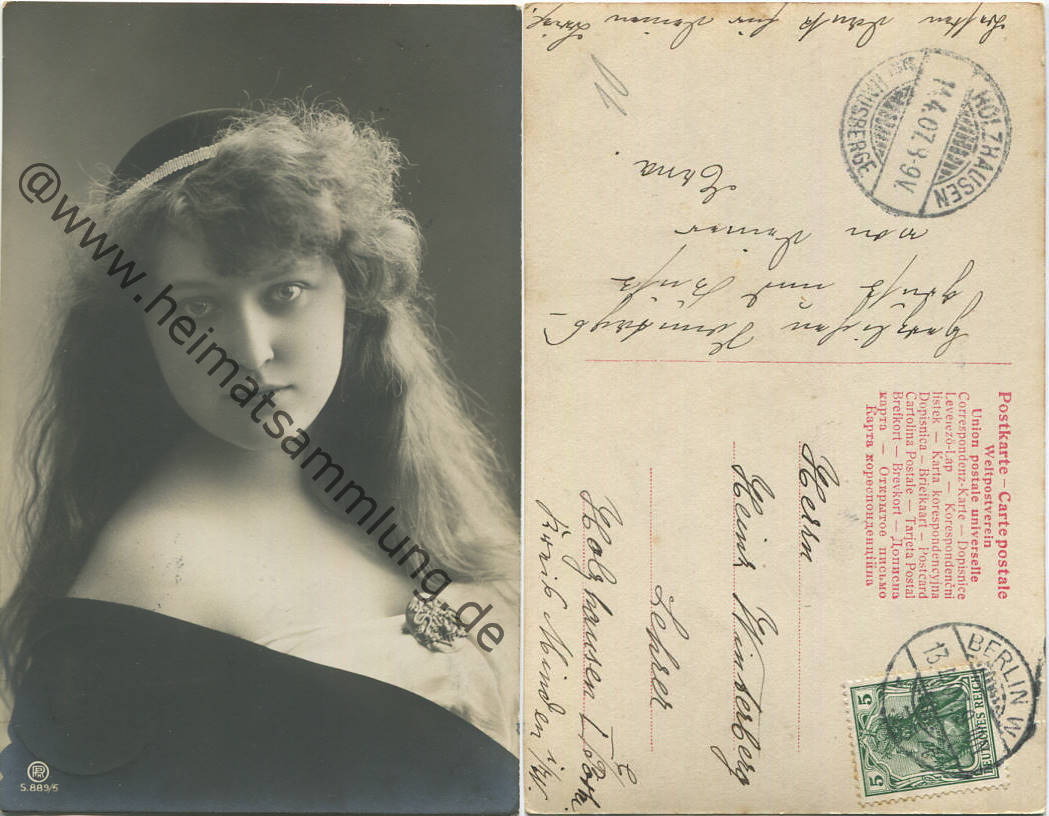 @www.heimatsammlung.de
S.889/5
Besten Dank für Deinen
Brief.
Herzlichen Sonntags-
Gruß und Kuß
von Deiner
Erna.
HOLZHAUSEN
14.4.07.8-9V.
HAUSBERGE
Postkarte – Carte postale
Weltpostverein
Union postale universelle
Correspondenz-Karte — Dopisnice
Levelező-Lap — Korespondenční
listek — Karta korespondencyjna
Dopisnica — Briefkaart — Postcard
Cartolina Postale — Tarjeta Postal
Brefkort — Brevkort — Дописна
карта — Открытое письмо
Карта кореспонденційна
BERLIN W.
13
DEUTSCHES REICH
5
5
Herrn
Heinr. Winterberg
Lehrer
Holzhausen b. Porta
Kreis Minden i/W.